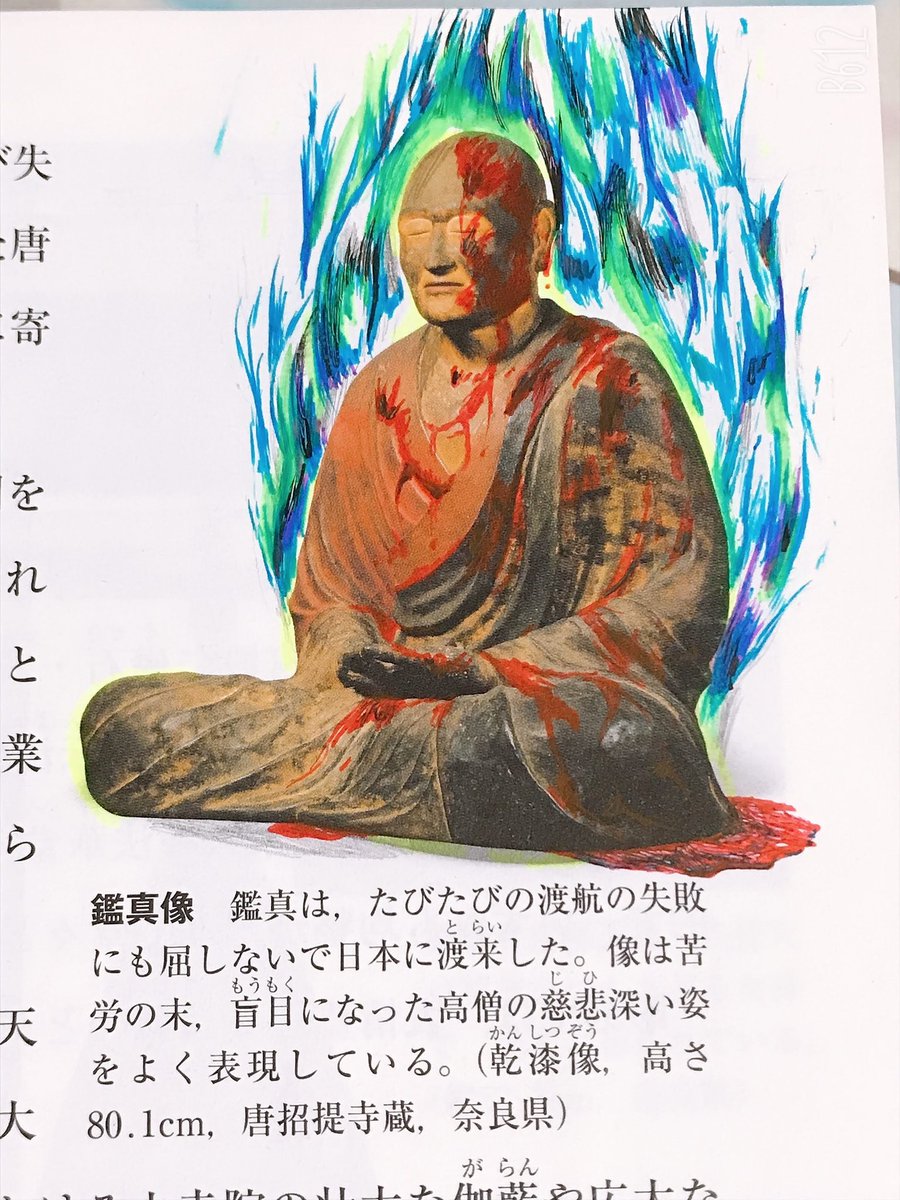 び失
唐
寄
を
れ
と
業
ら
天
大
鑑真像　鑑真は，たびたびの渡航の失敗
にも屈しないで日本に渡来した。像は苦
労の末，盲目になった高僧の慈悲深い姿
をよく表現している。(乾漆像，高さ
80.1cm，唐招提寺蔵，奈良県)
と らい
もうもく
じ ひ
かん しつ ぞう
が らん
伽藍や広大な
B612